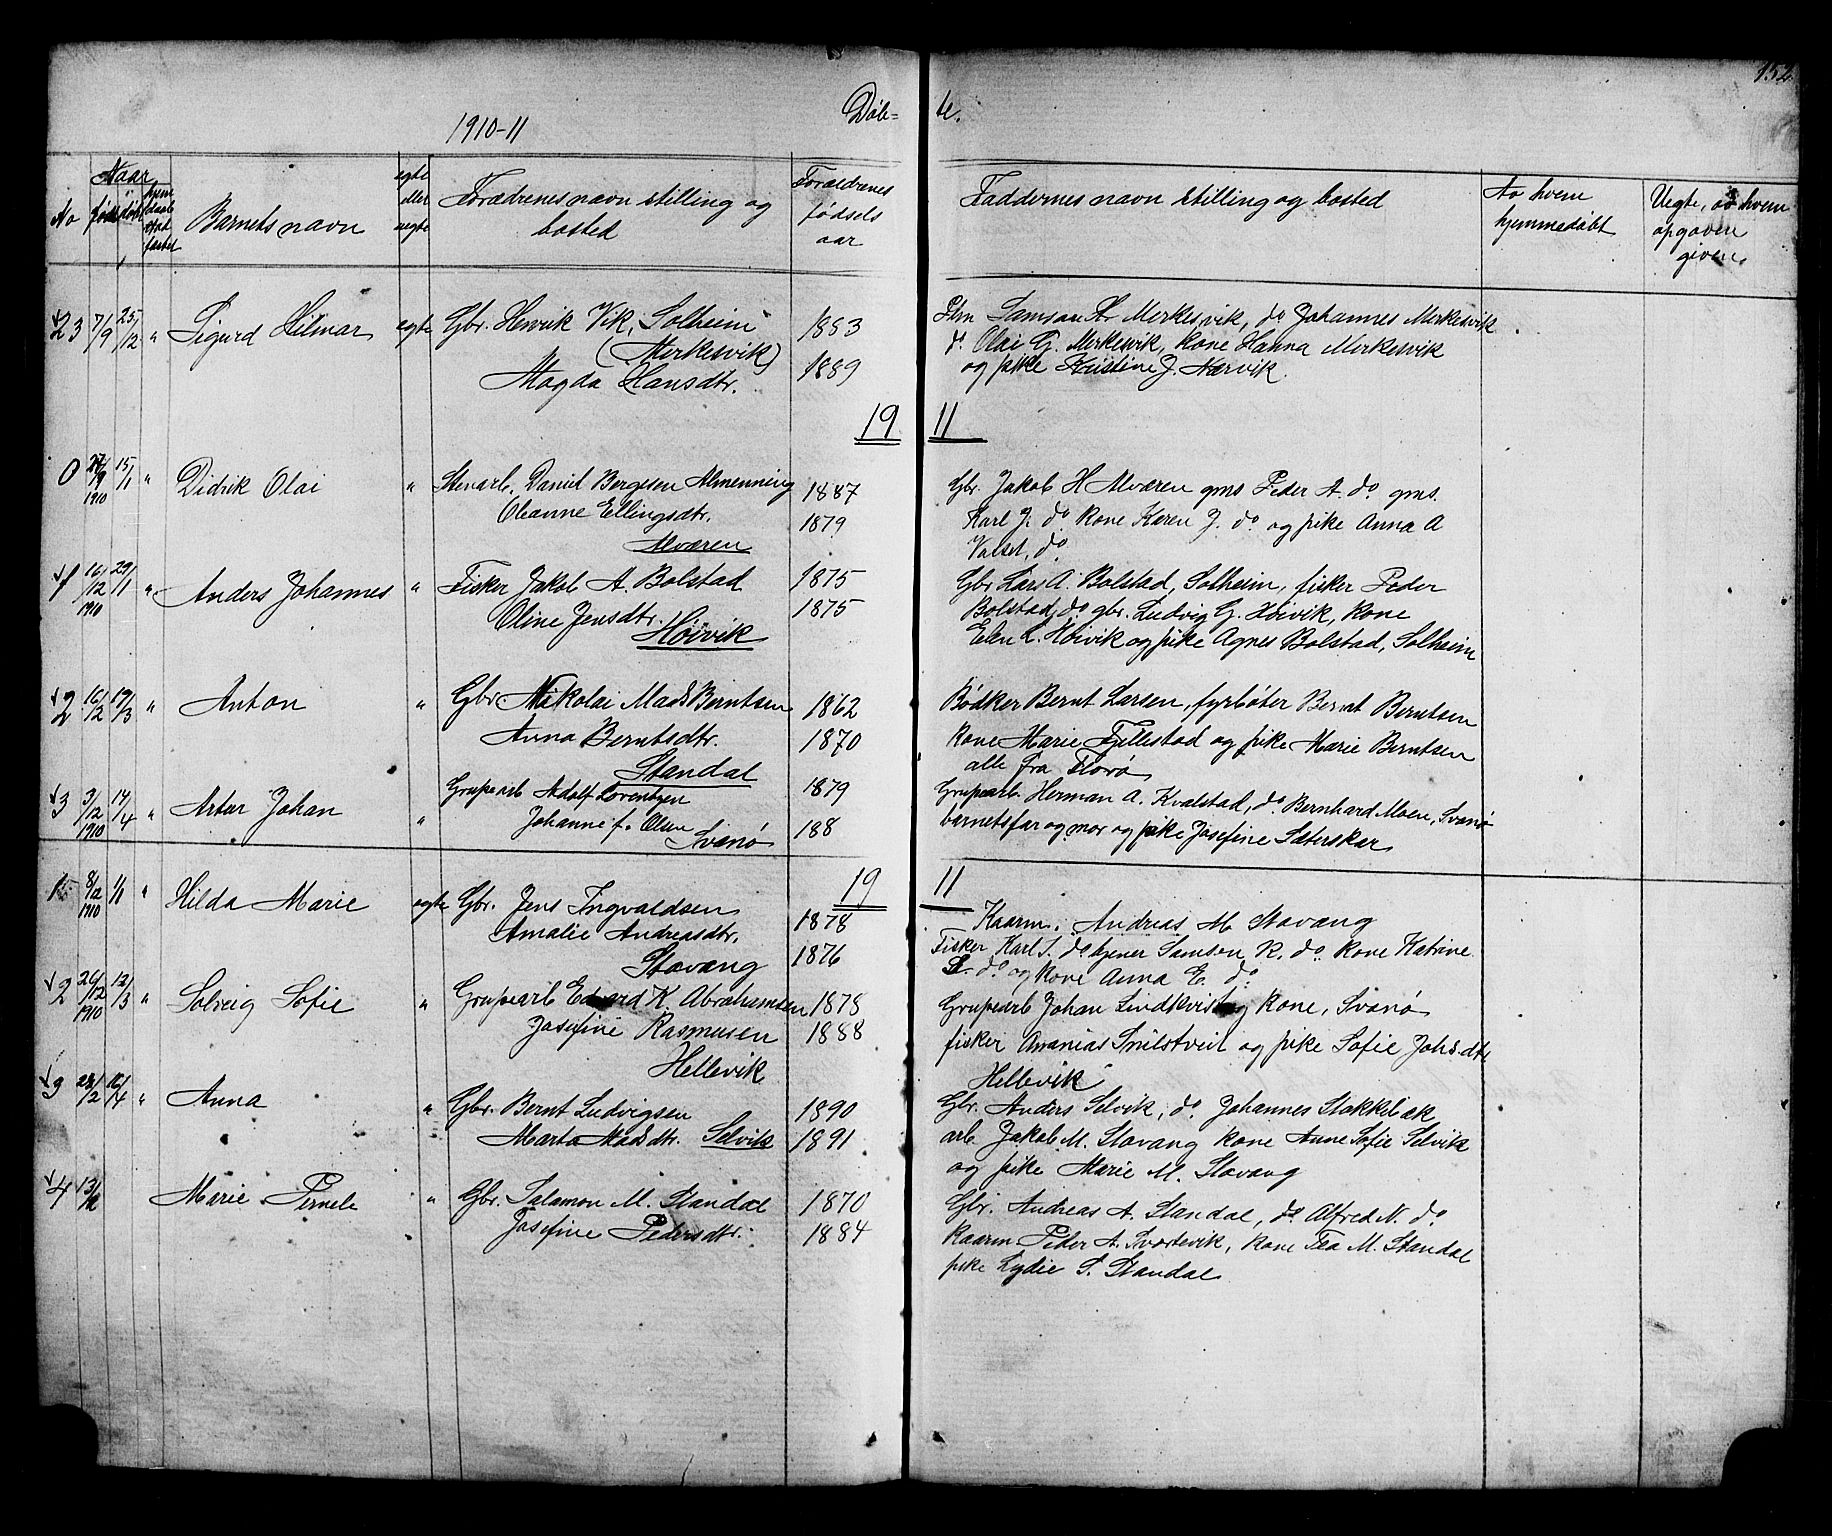 152.
1910-11
Døb= te.
No
Naar
født døbt hjemmedaab stadfæstet
Barnets navn
egte eller uegte
Forældrenes navn stilling og bosted
Forældrenes fødsels aar
Faddernes navn stilling og bosted
Av hvem hjemmedøbt
Uegte, av hvem opgaven given.
23 7/9 25/12 " Sigurd Hilmar egte Gbr. Henrik Vik, Solheim 1883
(Merkesvik)
Magda Hansdtr. 1889
Samson Merkesvik, do Johannes Merkesvik
do Olai G. Merkesvik, kone Hanna Merkesvik
og pike Kristine J. Nærvik.
19 11
0 27/9 1910 15/1 " Didrik Olai " Stenarb. Daniel Bergesen Almenning 1887
Oleanne Ellingsdtr. 1879
Alværen
Gbr. Jakob H Alværen gms Peder A. do gms.
Karl J. do kone Karen J. do og pike Anna A
Valset, do
1 16/12 1910 29/1 " Anders Johannes " Fisker Jakob A. Bolstad 1875
Oline Jensdtr. 1875
Høivik
Gbr Lars A. Bolstad, Solheim, fisker Peder
Bolstad, do gbr. Ludvig G. Høivik, kone
Elen L. Høivik og pike Agnes Bolstad, Solheim
2 16/12 19/3 " Anton " Gbr. Nikolai Mads Berntsen 1862
Anna Berntsdtr. 1870
Standal
Bødker Bernt Larsen, fyrbøter Bernt Berntsen
kone Marie Fjellestad og pike Marie Berntsen
alle fra Florø
3 3/12 1910 14/4 " Artur Johan " Grupearb Adolf Lorentzen 1879
Johanne f. Olsen 188
Svanø
Grupearb. Herman A. Kvalstad, do Bernhard Moen, Svanø
barnetsfar og mor og pike Josefine Sæterskar
19 11
1 8/12 1910 1/1 " Hilda Marie egte Gbr. Jens Ingvaldsen 1878
Amalie Andreasdtr. 1876
Stavang
Kaarm. Andreas M Stavang
Fisker Karl S. do tjener Samson R. do kone Katrine
S. do og kone Anna E. do
2 26/12 1910 12/3 " Solveig Sofie " Grupearb Edvard K. Abrahamsen 1878
Josefine Rasmusen 1888
Hellevik
Grupearb Johan Lindkvist og kone, Svanø
fisker Ananias Smilstveit og pike Sofie Johsdtr
Hellevik
3 28/2 16/4 " Anna " Gbr. Bernt Ludvigsen 1890
Marta Madsdtr. Selvik 1891
Gbr. Anders Selvik, do Johannes Stokkebæk
arb Jakob M. Stavang kone Anne Sofie Selvik
og pike Marie M. Stavang
4 13/ Marie Pernele " Gbr. Salamon M. Standal 1870
Josefine Pedersdtr. 1884
Gbr. Andreas A. Standal, do Alfred N. do
kaarm Peder A. Svartevik, kone Tea M. Standal
pike Lydie S. Standal